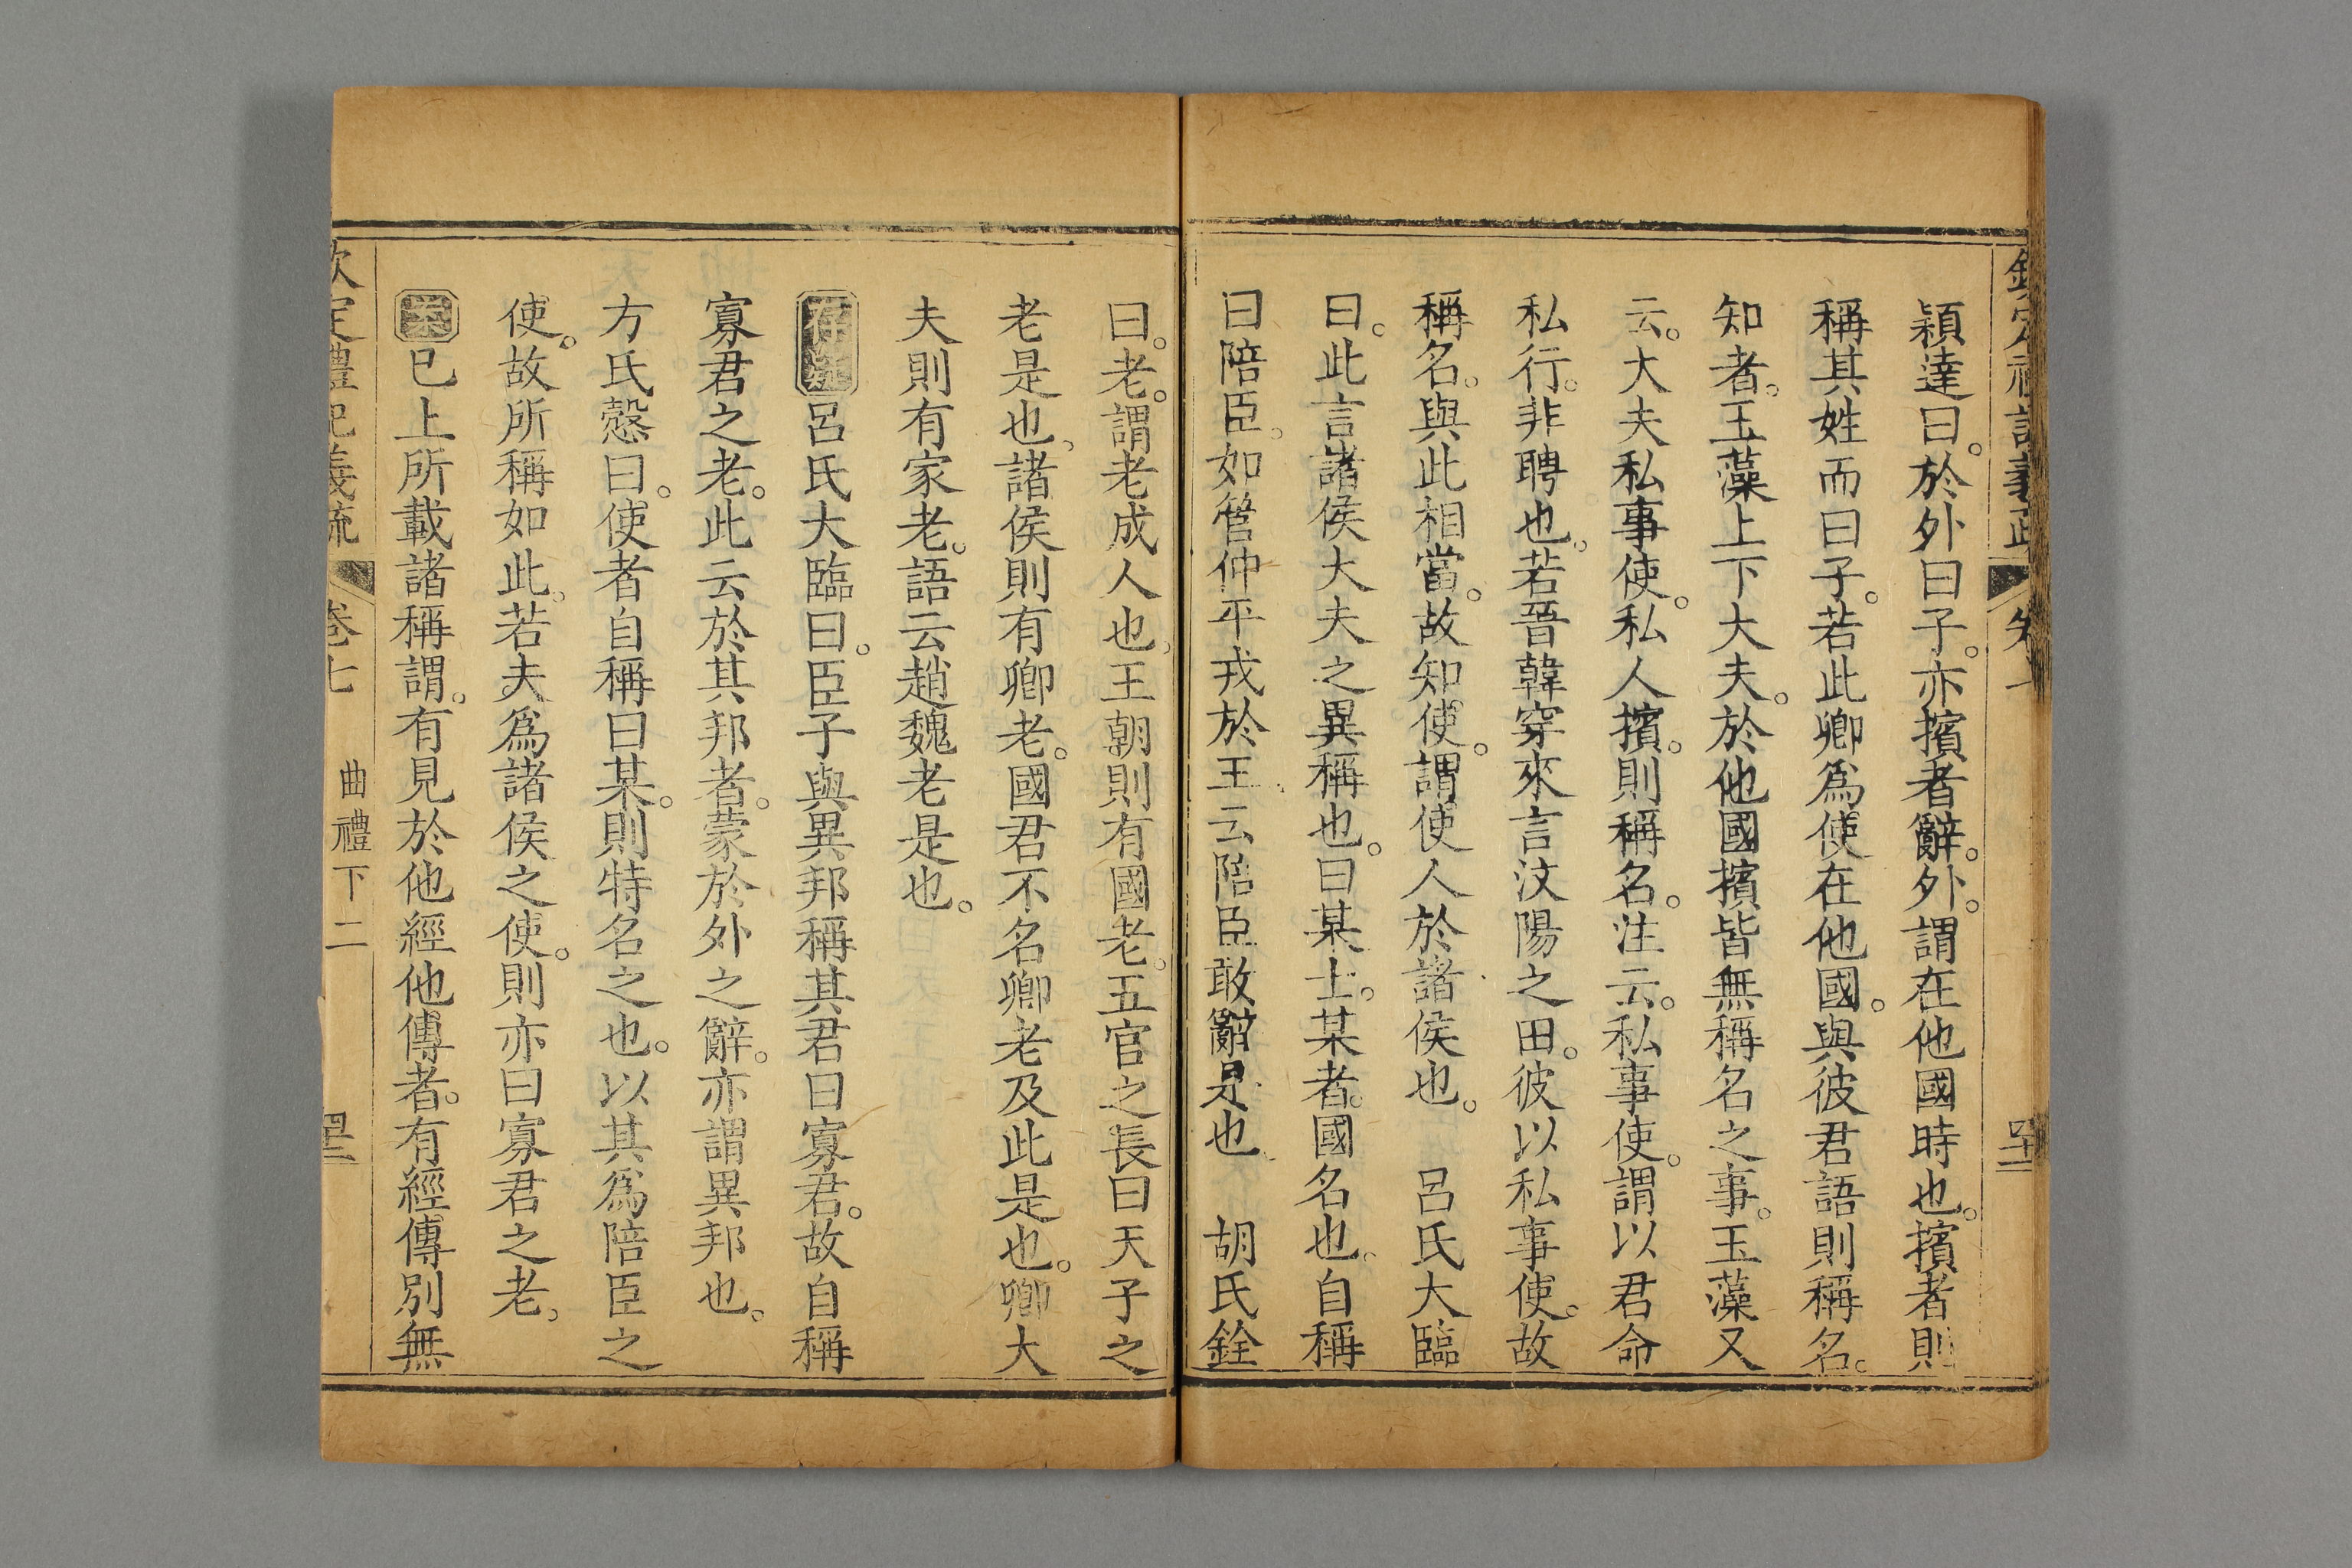 穎達曰。於外曰子。亦擯者辭。外。謂在他國時也。擯者則
稱其姓而曰子。若此卿爲使在他國。與彼君語則稱名。
知者。玉藻上下大夫。於他國擯皆無稱名之事。玉藻又
云。大夫私事使。私人擯。則稱名。注云。私事使。謂以君命
私行。非聘也。若晉韓穿來言汶陽之田。彼以私事使。故
稱名。與此相當。故知使。謂使人於諸侯也。 呂氏大臨
曰。此言諸侯大夫之異稱也。曰某士。某者。國名也。自稱
曰陪臣。如管仲平戎於王。云陪臣敢辭是也 胡氏銓
曰。老。謂老成人也。王朝則有國老。五官之長曰天子之
老是也。諸侯則有卿老。國君不名卿老及此是也。卿大
夫則有家老。語云趙魏老是也。
存疑呂氏大臨曰。臣子與異邦稱其君曰寡君。故自稱
寡君之老。此云於其邦者。蒙於外之辭。亦謂異邦也。
方氏慤曰。使者自稱曰某。則特名之也。以其爲陪臣之
使。故所稱如此。若夫爲諸侯之使。則亦曰寡君之老。
案已上所載諸稱謂。有見於他經他傳者。有經傳別無
欽定禮記義疏 卷七 曲禮下二